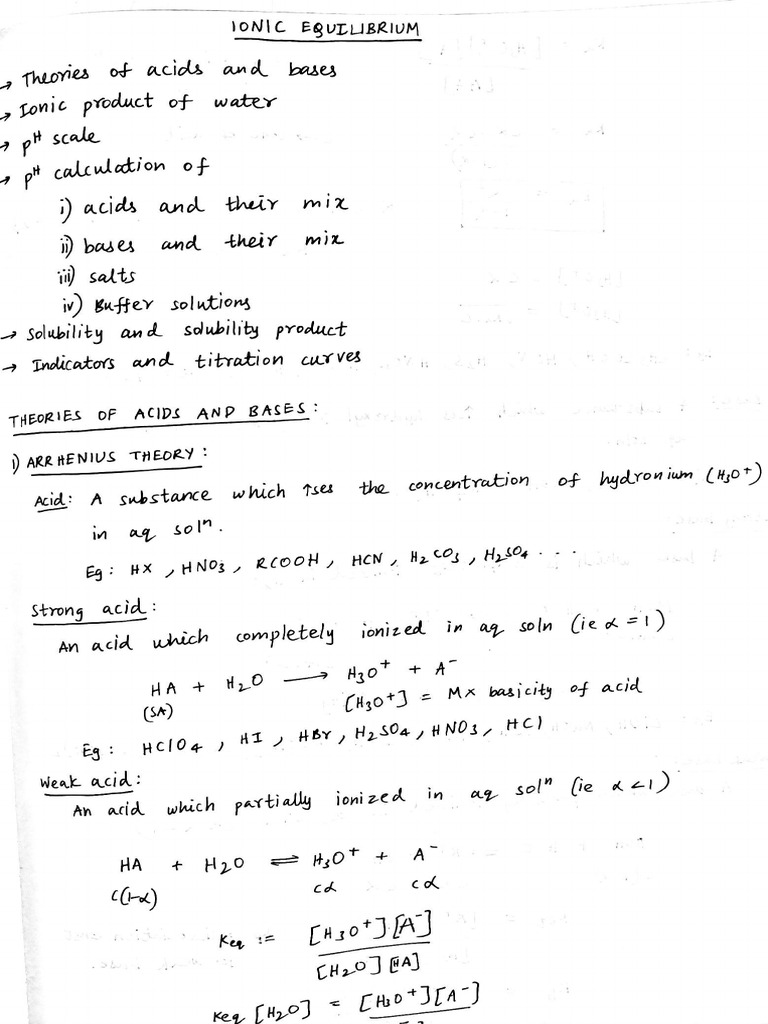 IONIC EQUILIBRIUM
→ Theories of acids and bases
→ Ionic product of water
→ pᴴ scale
→ pᴴ calculation of
i) acids and their mix
ii) bases and their mix
iii) salts
iv) Buffer solutions
→ Solubility and solubility product
→ Indicators and titration curves
THEORIES OF ACIDS AND BASES:
i) ARRHENIUS THEORY:
Acid: A substance which ↑ses the concentration of hydronium (H₃O⁺)
in aq solⁿ.
Eg: HX, HNO₃, RCOOH, HCN, H₂CO₃, H₂SO₄...
Strong acid:
An acid which completely ionized in aq soln (ie α = 1)
HA + H₂O ⟶ H₃O⁺ + A⁻
(SA) [H₃O⁺] = M× basicity of acid
Eg: HClO₄, HI, HBr, H₂SO₄, HNO₃, HCl
Weak acid:
An acid which partially ionized in aq solⁿ (ie α < 1)
HA + H₂O ⇌ H₃O⁺ + A⁻
C(1-α) cα cα
Keq := [H₃O⁺][A⁻]
[H₂O][HA]
Keq [H₂O] = [H₃O⁺][A⁻]